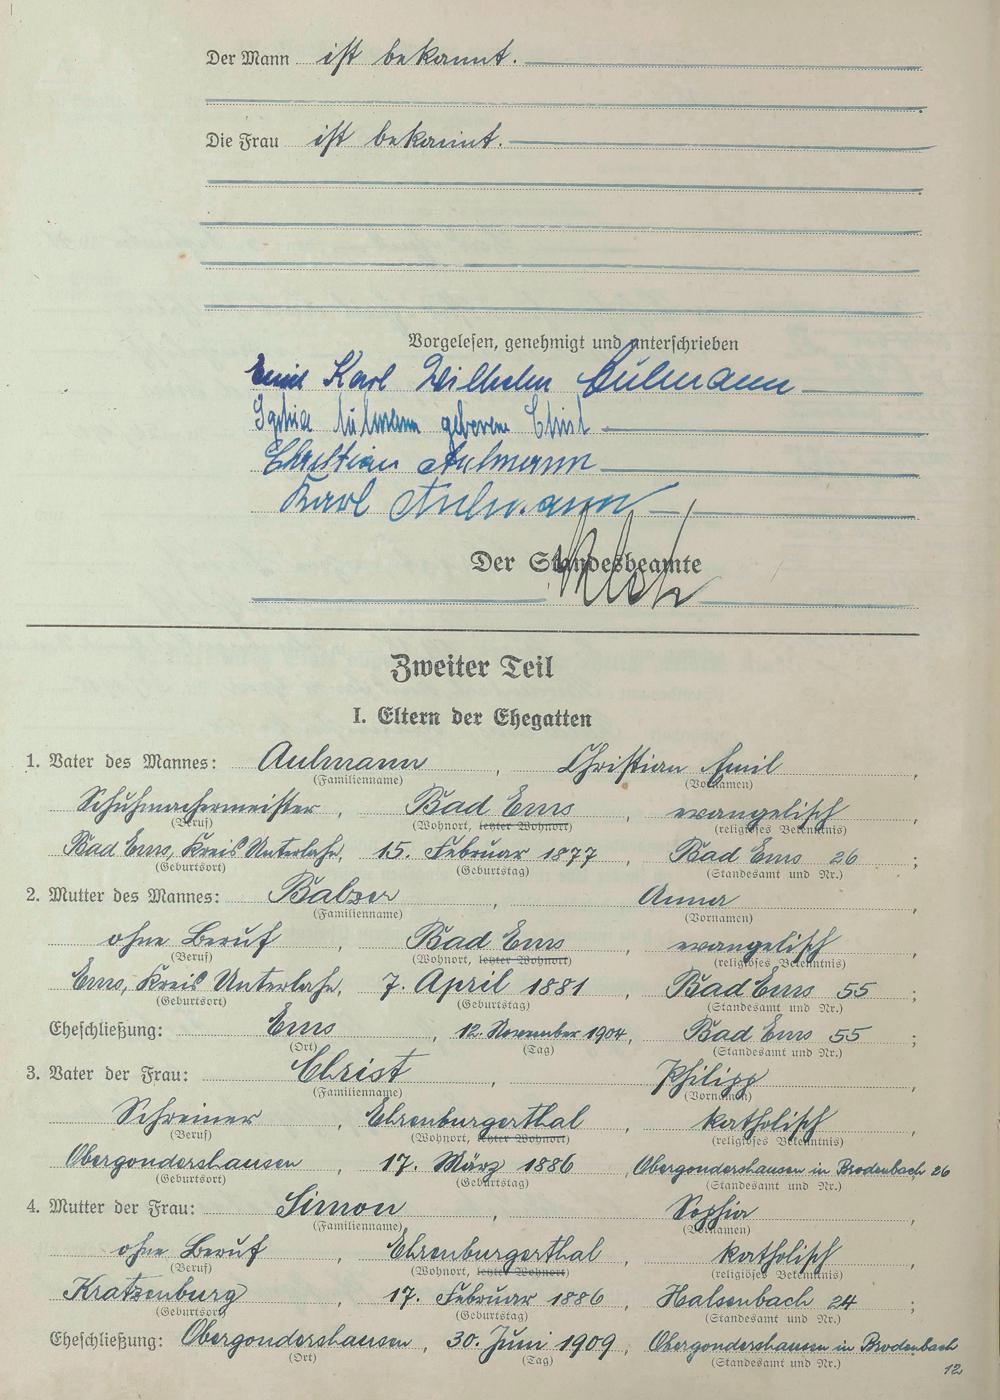 Der Mann ist bekannt.
Die Frau ist bekannt.
Vorgelesen, genehmigt und unterschrieben
Emil Karl Wilhelm Aulmann
Sophia Aulmann geborene Christ
Christian Aulmann
Karl Aulmann
Der Standesbeamte
Zweiter Teil
I. Eltern der Ehegatten
1. Vater des Mannes: Aulmann, Christian Emil,
(Familienname) (Vornamen)
Schuhmachermeister, Bad Ems, evangelisch,
(Beruf) (Wohnort, letzter Wohnort) (religiöses Bekenntnis)
Bad Ems, Kreis Unterlahn, 15. Februar 1877, Bad Ems 26;
(Geburtsort) (Geburtstag) (Standesamt und Nr.)
2. Mutter des Mannes: Balzer, Anna,
(Familienname) (Vornamen)
ohne Beruf, Bad Ems, evangelisch,
(Beruf) (Wohnort, letzter Wohnort) (religiöses Bekenntnis)
Ems, Kreis Unterlahn, 7. April 1881, Bad Ems 55;
(Geburtsort) (Geburtstag) (Standesamt und Nr.)
Eheschließung: Ems, 12. November 1904, Bad Ems 55;
(Ort) (Tag) (Standesamt und Nr.)
3. Vater der Frau: Christ, Philipp,
(Familienname) (Vornamen)
Schreiner, Ehrenburgerthal, katholisch,
(Beruf) (Wohnort, letzter Wohnort) (religiöses Bekenntnis)
Obergondershausen, 17. März 1886, Obergondershausen in Brodenbach 26
(Geburtsort) (Geburtstag) (Standesamt und Nr.)
4. Mutter der Frau: Simon, Sophia,
(Familienname) (Vornamen)
ohne Beruf, Ehrenburgerthal, katholisch,
(Beruf) (Wohnort, letzter Wohnort) (religiöses Bekenntnis)
Kratzenburg, 17. Februar 1886, Halsenbach 24;
(Geburtsort) (Geburtstag) (Standesamt und Nr.)
Eheschließung: Obergondershausen, 30. Juni 1909, Obergondershausen in Brodenbach
(Ort) (Tag) (Standesamt und Nr.) 12